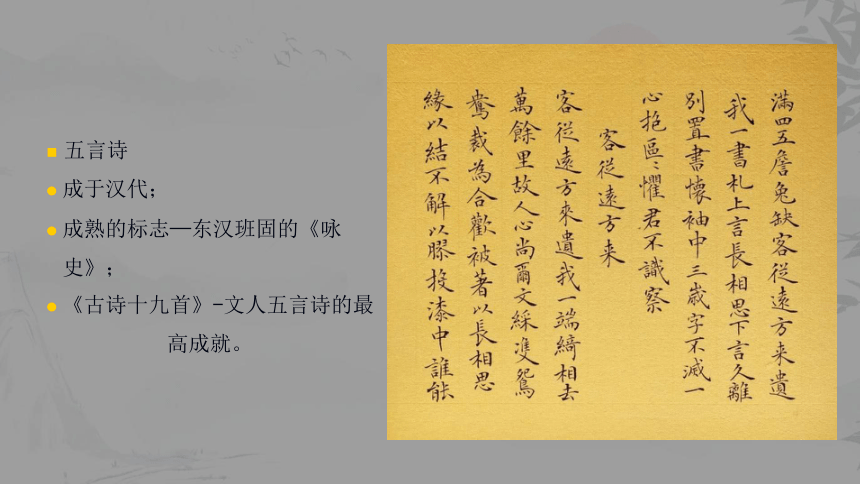 五言诗
成于汉代；
成熟的标志—东汉班固的《咏
史》；
《古诗十九首》-文人五言诗的最
高成就。
滿四五詹兔缺客從遠方来遺
我一書札上言長相思下言久離
別置書懷袖中三嵗字不滅一
心抱區〻懼君不識察
客從遠方来
客從遠方來遺我一端綺相去
萬餘里故人心尚爾文綵䨇鴛
鴦裁為合歡被著以長相思
緣以結不解以膠投漆中誰能